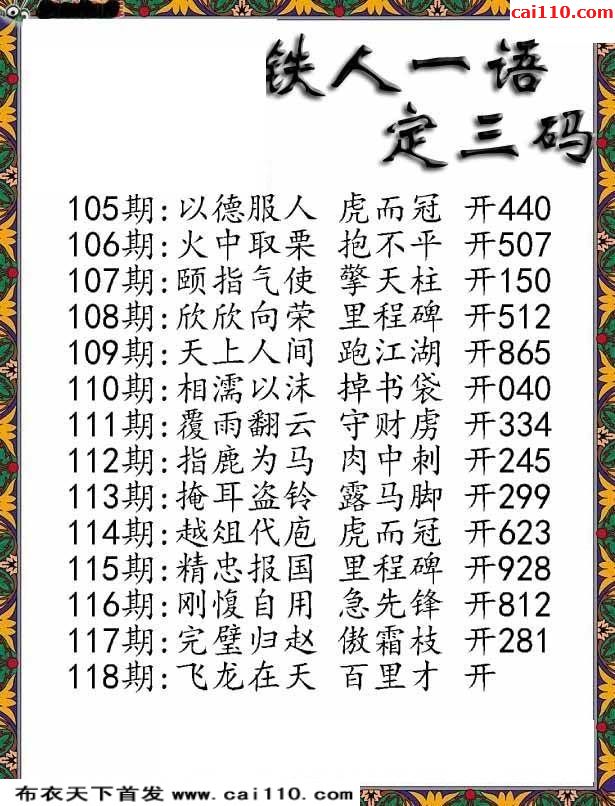 cai110.com
铁人一语
定三码
105期:以德服人 虎而冠 开440
106期:火中取栗 抱不平 开507
107期:颐指气使 擎天柱 开150
108期:欣欣向荣 里程碑 开512
109期:天上人间 跑江湖 开865
110期:相濡以沫 掉书袋 开040
111期:覆雨翻云 守财虏 开334
112期:指鹿为马 肉中刺 开245
113期:掩耳盗铃 露马脚 开299
114期:越俎代庖 虎而冠 开623
115期:精忠报国 里程碑 开928
116期:刚愎自用 急先锋 开812
117期:完璧归赵 傲霜枝 开281
118期:飞龙在天 百里才 开
布衣天下首发 www.cai110.com